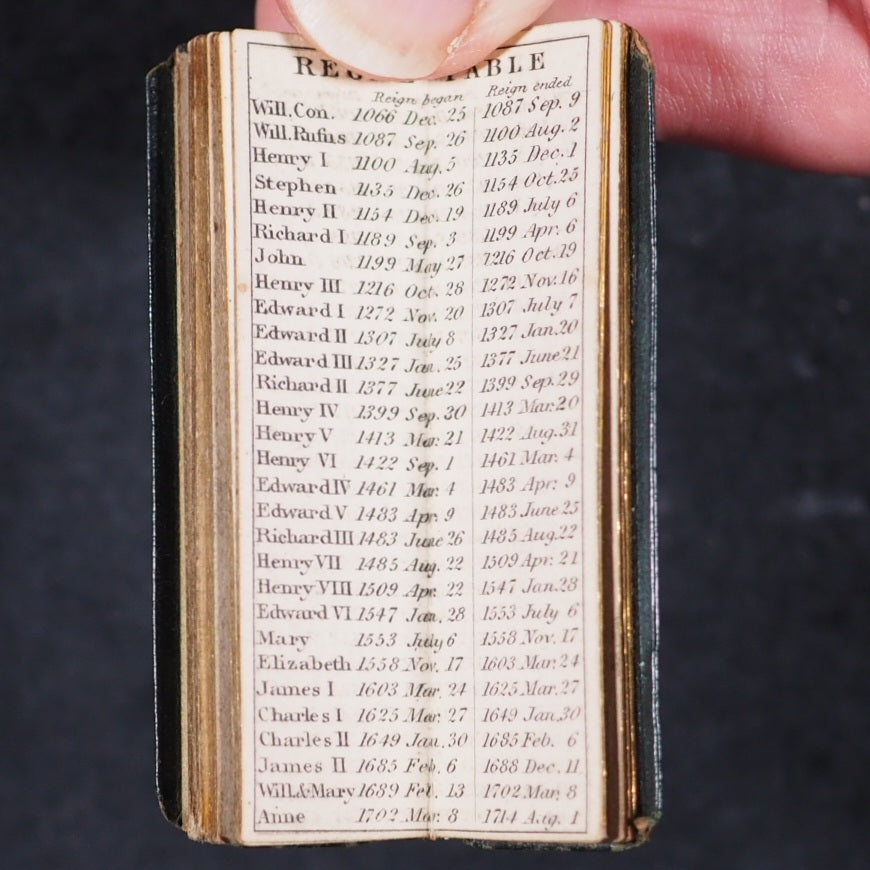 TABLE
Reign began Reign ended
Will. Con. 1066 Dec. 25 1087 Sep. 9
Will. Rufus 1087 Sep. 26 1100 Aug. 2
Henry I 1100 Aug. 5 1135 Dec. 1
Stephen 1135 Dec. 26 1154 Oct. 25
Henry II 1154 Dec. 19 1189 July 6
Richard I 1189 Sep. 3 1199 Apr. 6
John 1199 May 27 1216 Oct. 19
Henry III 1216 Oct. 28 1272 Nov. 16
Edward I 1272 Nov. 20 1307 July 7
Edward II 1307 July 8 1327 Jan. 20
Edward III 1327 Jan. 25 1377 June 21
Richard II 1377 June 22 1399 Sep. 29
Henry IV 1399 Sep. 30 1413 Mar: 20
Henry V 1413 Mar: 21 1422 Aug. 31
Henry VI 1422 Sep. 1 1461 Mar. 4
Edward IV 1461 Mar: 4 1483 Apr: 9
Edward V 1483 Apr: 9 1483 June 25
Richard III 1483 June 26 1485 Aug. 22
Henry VII 1485 Aug. 22 1509 Apr. 21
Henry VIII 1509 Apr. 22 1547 Jan. 28
Edward VI 1547 Jan. 28 1553 July 6
Mary 1553 July 6 1558 Nov. 17
Elizabeth 1558 Nov. 17 1603 Mar. 24
James I 1603 Mar. 24 1625 Mar. 27
Charles I 1625 Mar. 27 1649 Jan. 30
Charles II 1649 Jan. 30 1685 Feb. 6
James II 1685 Feb. 6 1688 Dec. 11
Will & Mary 1689 Feb. 13 1702 Mar. 8
Anne 1702 Mar. 8 1714 Aug. 1